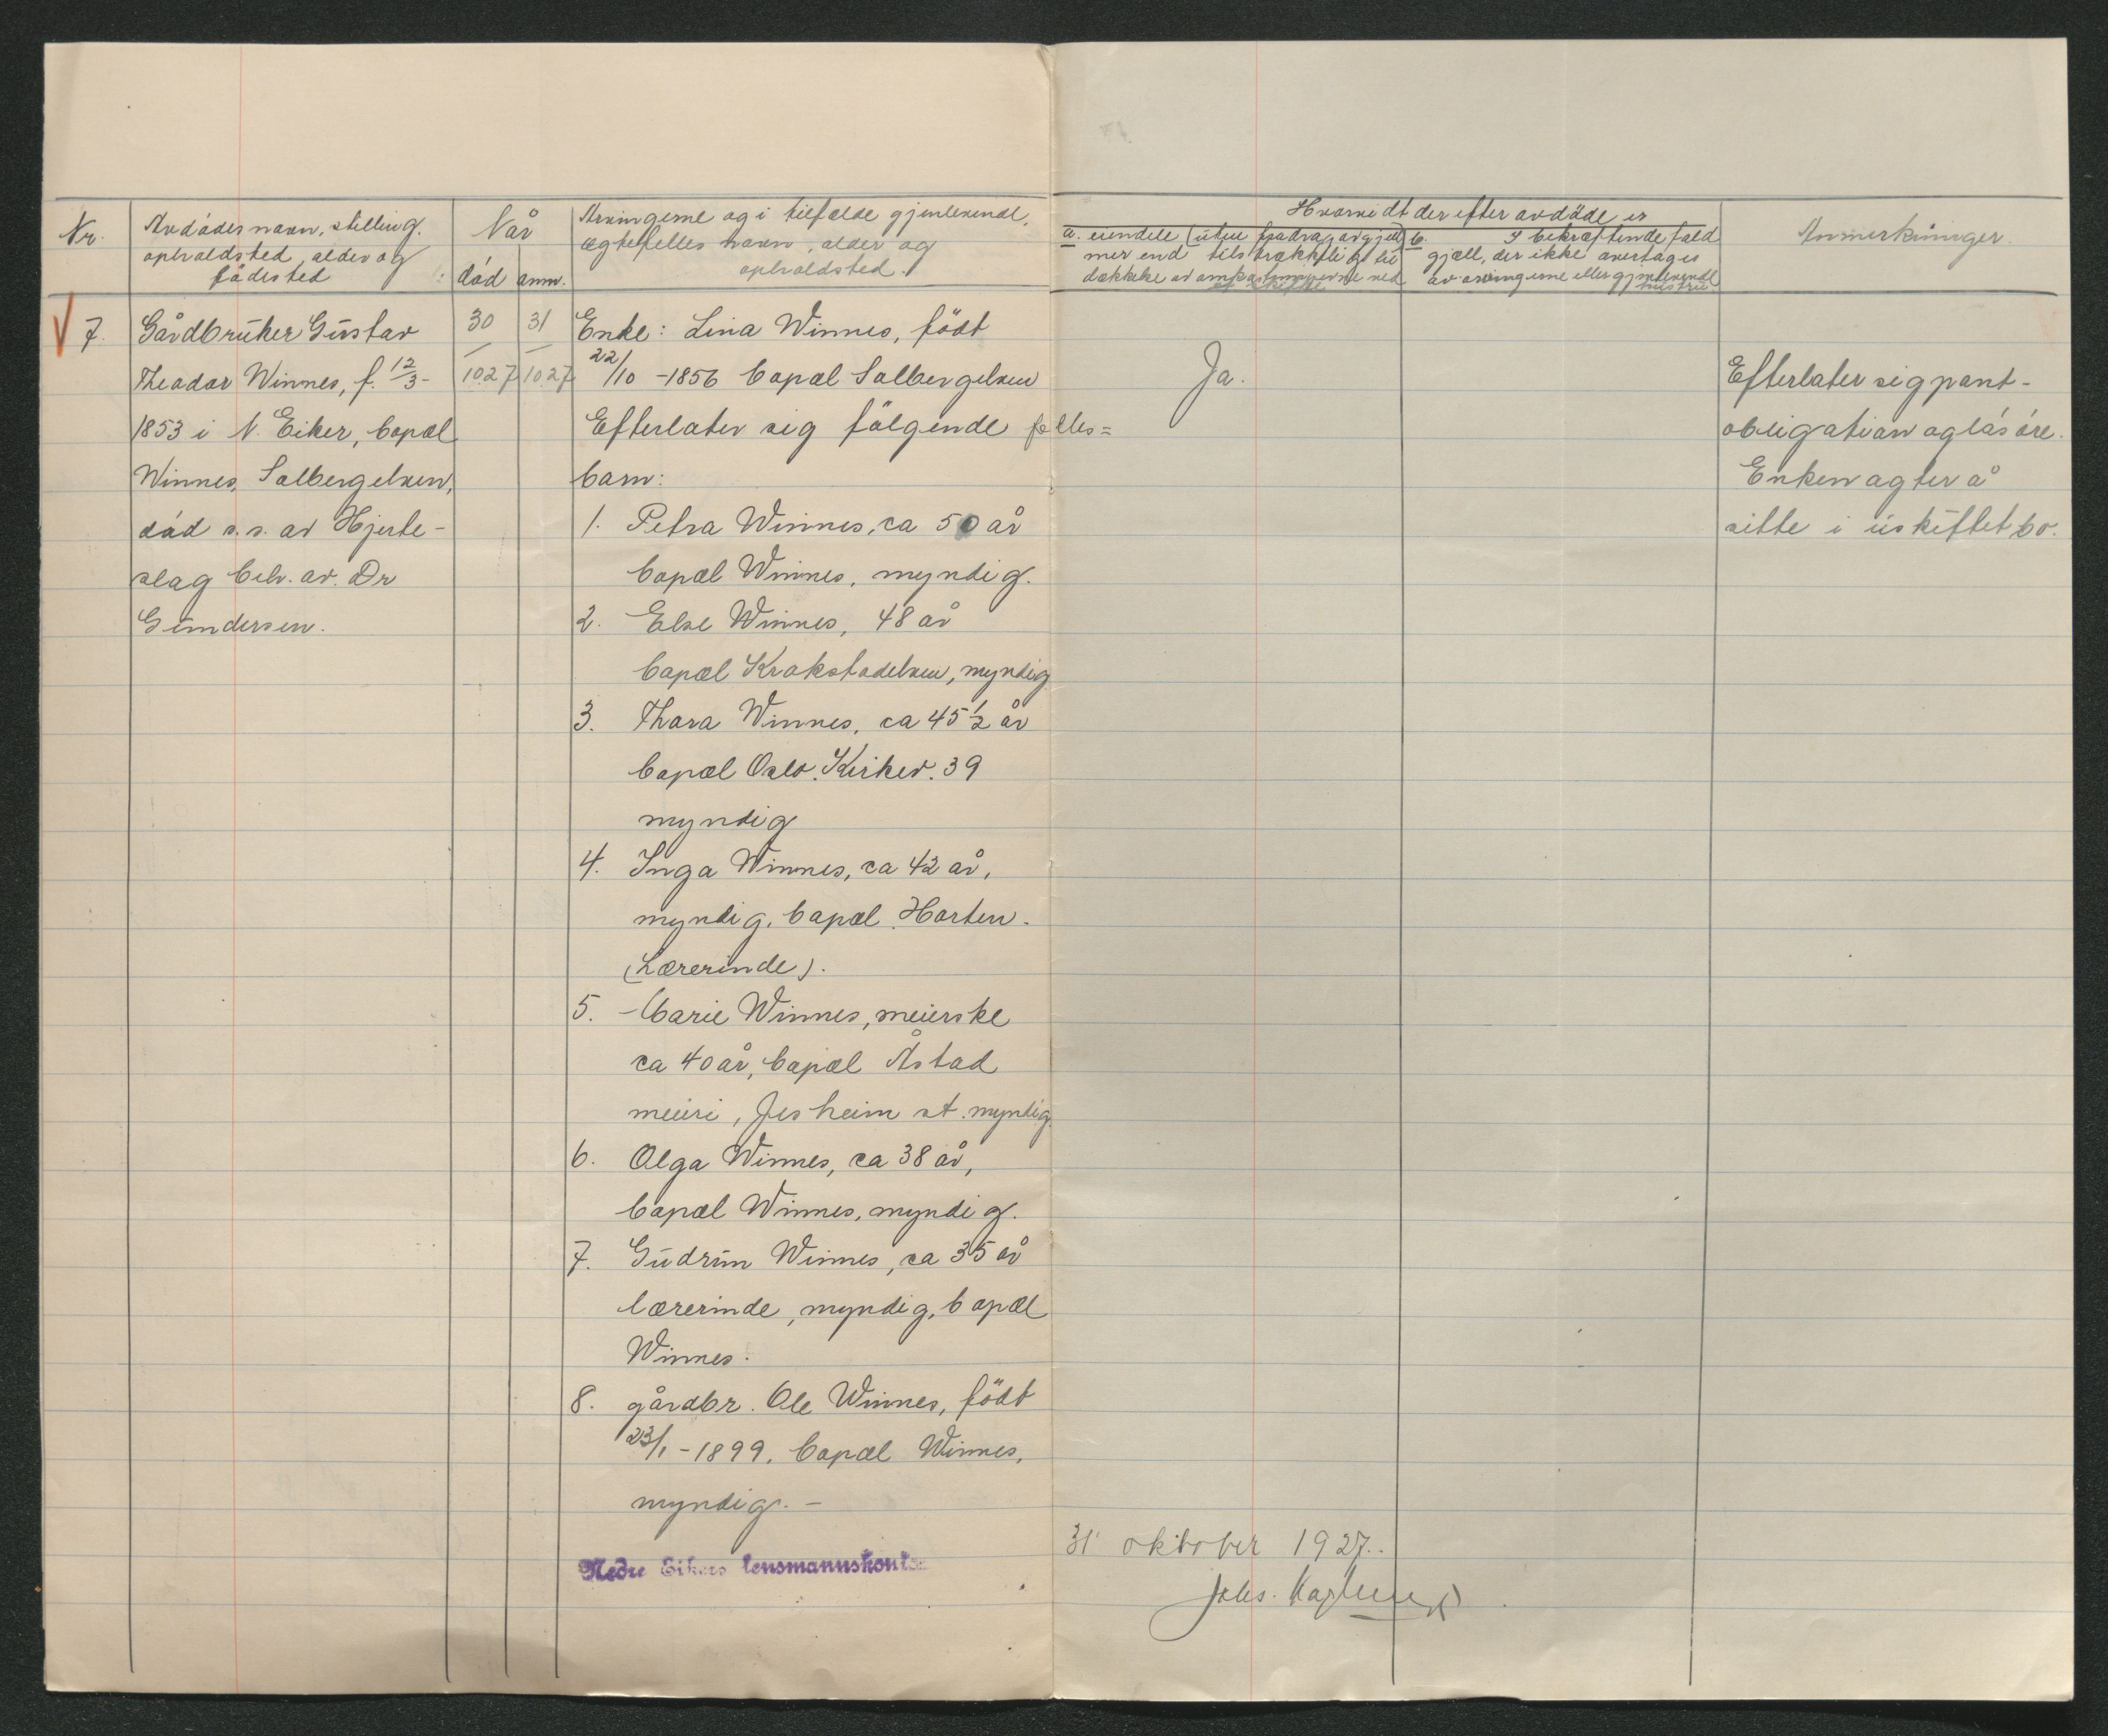 Nr.
Avdödes navn, stilling.
opholdsted, alder og
födested
Når
död anm.
Arvingerne og i tilfælde gjenlevende,
ægtefelles navn, alder og
opholdsted.
Hvorvidt der efter avdöde er
a. eiendele (uten fradrag av gjæll)
mer end tilstrækkelig til
dækkelse av omkostningerne ved
b. I bekræftende fald
gjæll, der ikke overtages
av arvingerne eller gjenlevende
Anmerkninger.
7.
Gårdbruker Gustav
Theodor Winnes, f. 12/3-
1853 i N. Eiker, bopæl
Winnes, Solbergelven,
död s.s. av Hjerte-
slag beh. av. Dr
Gundersen.
30
10.27
31
10.27
Enke: Lina Winnes, födt
22/10 -1856 bopæl Solbergelven
Efterlater sig fölgende felles=
barn:
1. Petra Winnes, ca 50 år
bopæl Winnes, myndig.
2. Else Winnes, 48 år
bopæl Krokstadelven, myndig
3. Thora Winnes, ca 45 1/2 år
bopæl Oslo. Kirkev. 39
myndig
4. Inga Winnes, ca 42 år,
myndig, bopæl Horten.
(Lærerinde).
5. Marie Winnes, meierske
ca 40 år, bopæl Åstad
meieri, Jesheim st. myndig
6. Olga Winnes, ca 38 år,
bopæl Winnes, myndig.
7. Gudrun Winnes, ca 35 år
lærerinde, myndig, bopæl
Winnes.
8. gårdbr. Ole Winnes, födt
23/1 -1899, bopæl Winnes,
myndig. -
Nedre Eikers lensmannskontor
Ja.
Efterlater sig pant-
obligation og lösöre.
Enken agter å
sitte i uskiftet bo.
31 oktober 1927.
Johs.